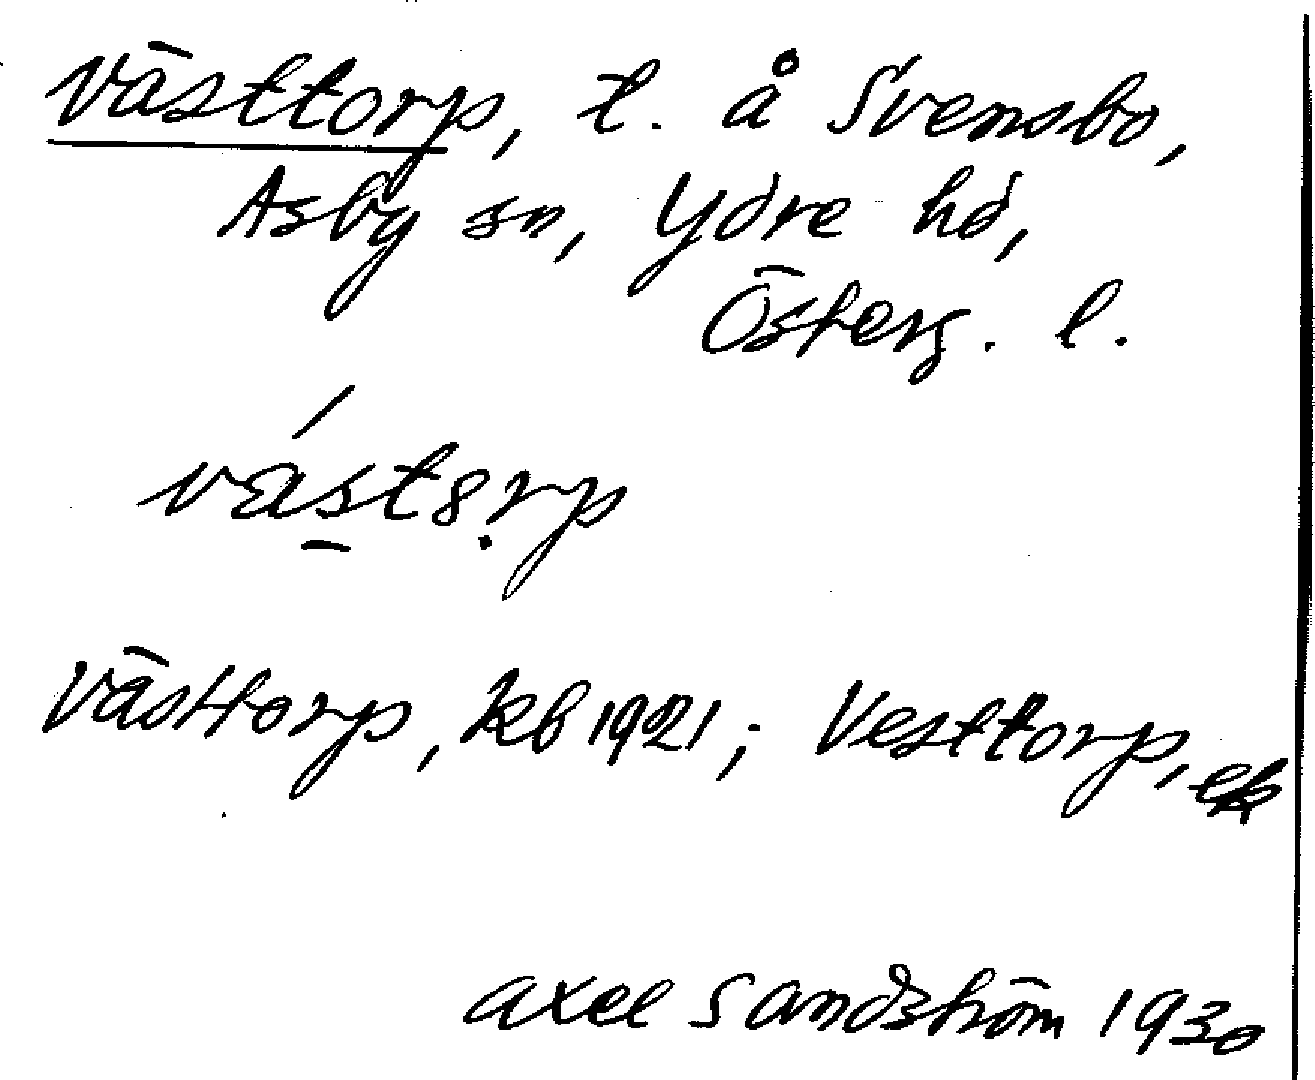 Västtorp, t. å Svensbo,
Asby sn, Ydre hd,
Österg. l.
västorp
Västtorp, kb 1921; Vesttorp, ek
Axel Sandström 1930